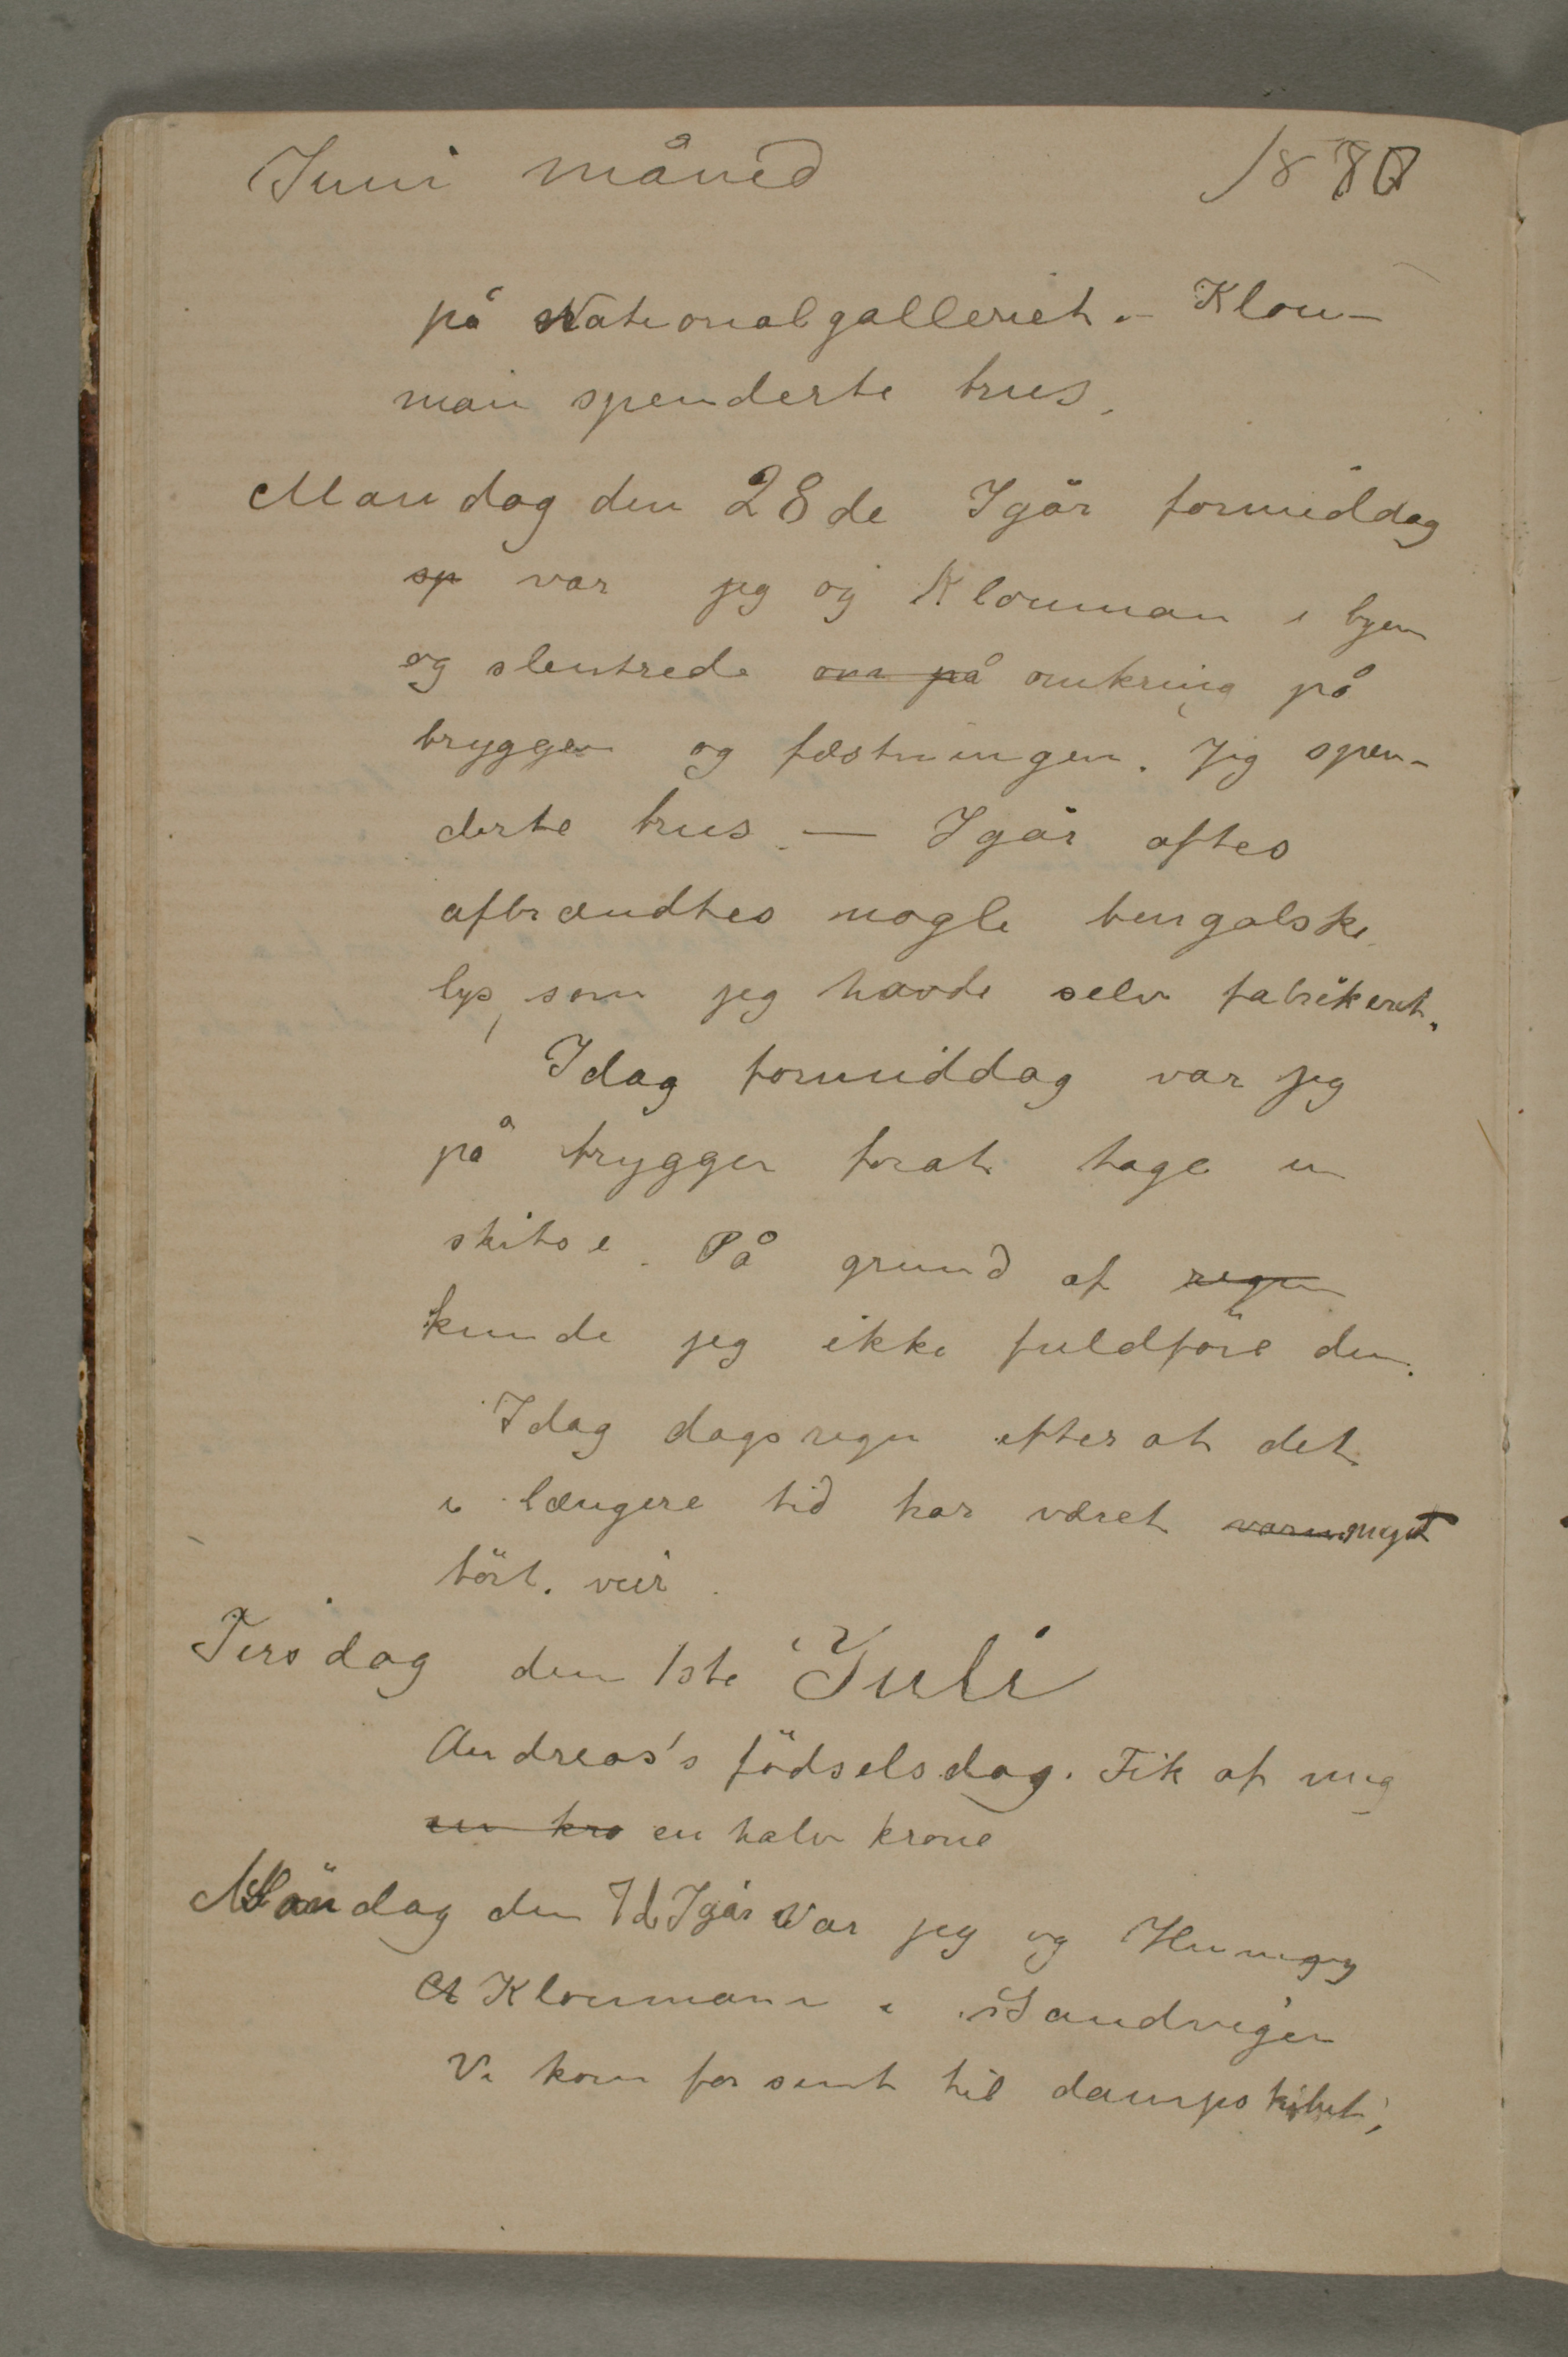 Juni måned 1880
på Nationalgalleriet. – Klou-
man spenderte brus.
Mandag den 28de Igår formiddag
sp var jeg og Klouman i byen
og slentrede om på omkring på
bryggen og fæstningen. Jeg spen-
derte brus. — Igår aftes
afbrændtes nogle bengalske
lys, som jeg havde selv fabrikeret.
Idag formiddag var jeg
på bryggen forat tage en
skitse. På grund af regn
kunde jeg ikke fuldföre den.
Idag dagsregn efter at det
i længere tid har været varm meget
tört. veir.
Tirsdag den 1ste Juli
Andreas's födselsdag. Fik af mig
en kro en halv krone
Mandag den Igår var jeg og
Kloumann i Sandvigen
Vi kom for sent til dampskibet,